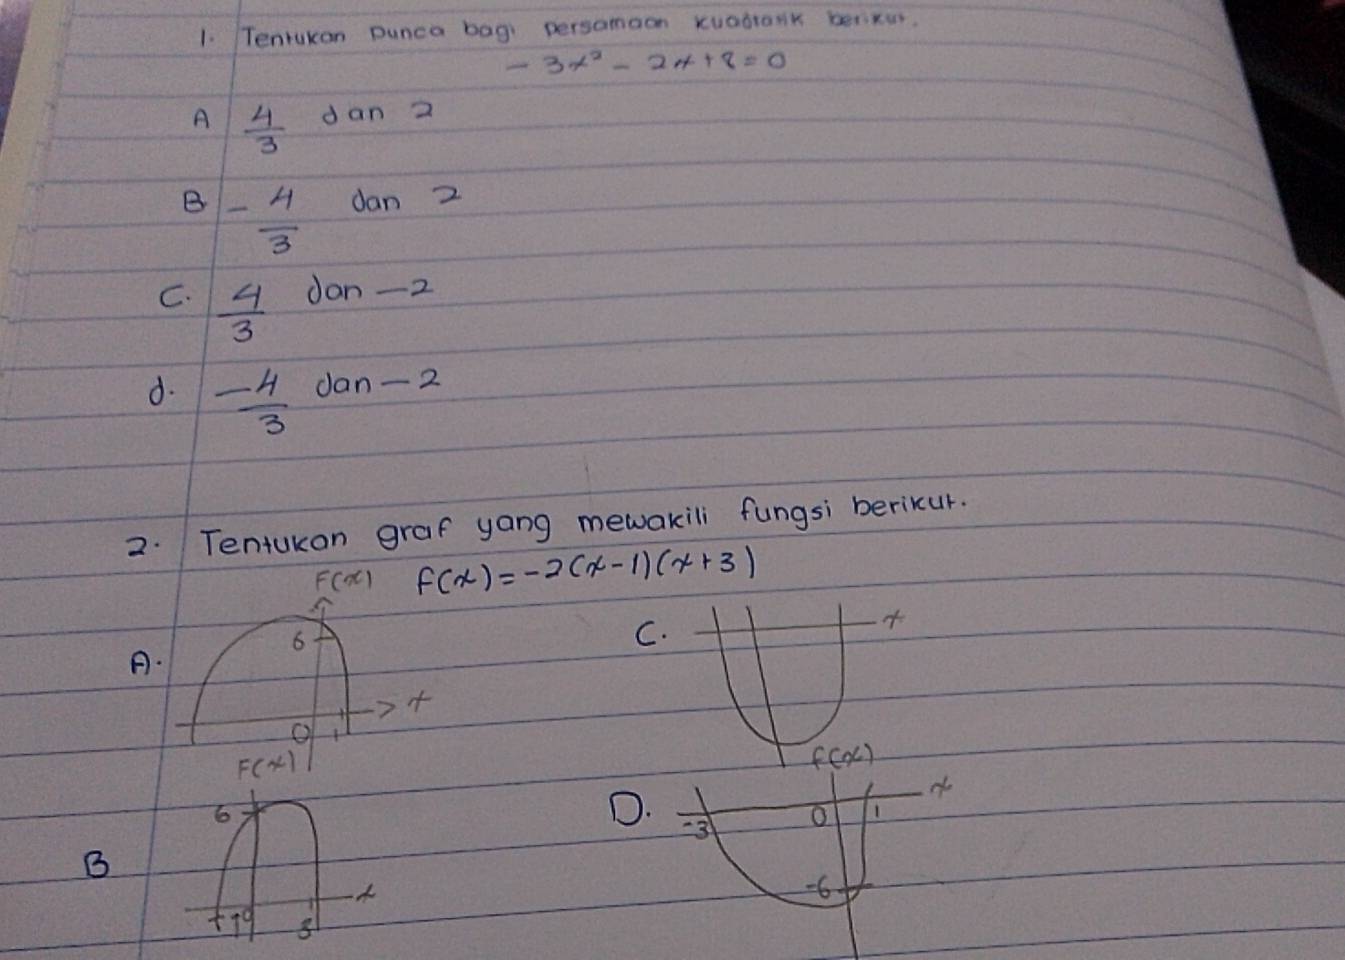 1. Tentukan punca bagi persamaan kuadratik berikut.
- 3x² - 2x + 8 = 0
A 4/3 dan 2
B - 4/3 dan 2
C. 4/3 dan -2
d. -4/3 dan -2
2. Tentukan graf yang mewakili fungsi berikut.
f(x) = -2(x-1)(x+3)
A.
F(x)
6
x
0
1
C.
x
B
F(x)
6
x
3
D.
f(x)
x
-3
0
1
-6